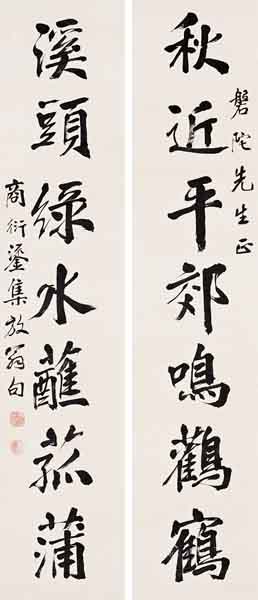 秋近平郊鳴鸛鶴
磐陀先生正
溪頭緑水蘸菰蒲
商衍鎏集放翁句